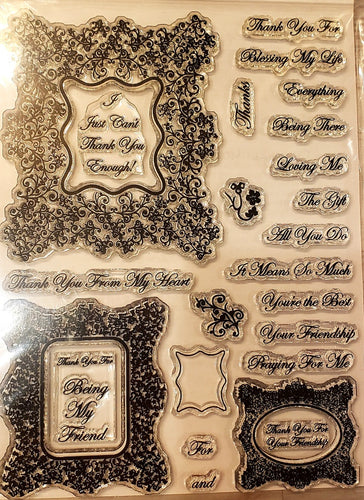 I
Just Can't
Thank You
Enough!
Thank You For
Blessing My Life
Thanks
Everything
Being There
Loving Me
The Gift
All You Do
It Means So Much
Thank You From My Heart
You're the Best
Your Friendship
Praying For Me
Thank You For
Being
My
Friend
For
and
Thank You For
Your Friendship